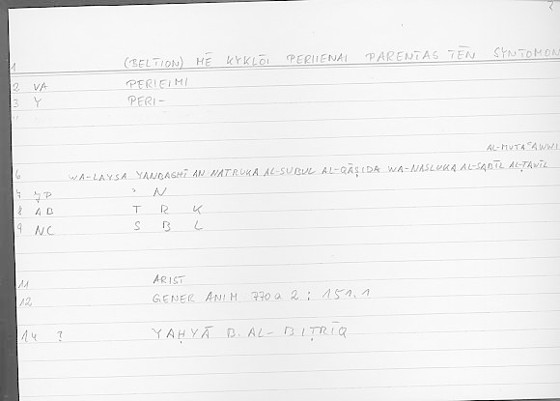 1 (BELTION) MĒ KYKLŌI PERIIENAI PARENTAS TĒN SYNTOMON
2 VA PERIEIMI
3 Y PERI-
AL-MUTAʿAWWI
6 WA-LAYSA YANBAGHĪ AN NATRUKA AL-SUBUL AL-QĀṢIDA WA-NASLUKA AL-SABĪL AL-ṬAWĪL
7 ʾ N
8 AB T R K
9 NC S B L
11 ARIST
12 GENER ANIM 770a 2 : 151.1
14 ? YAḤYĀ B. AL-BIṬRĪQ